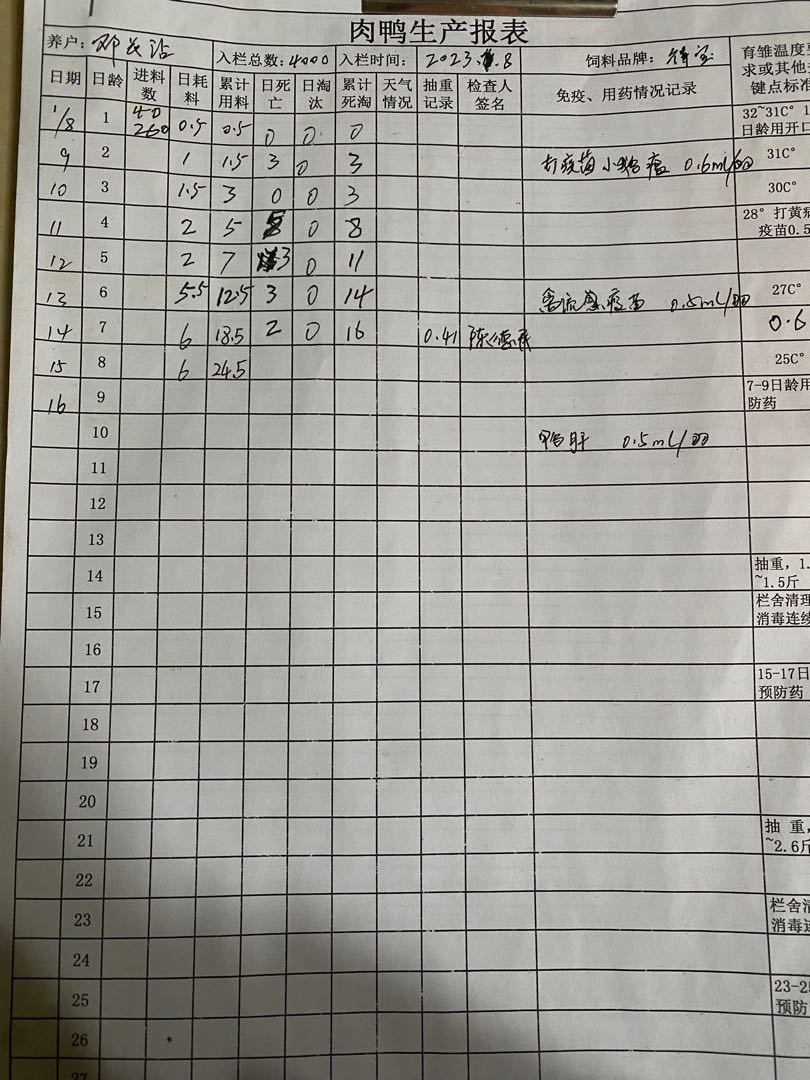 肉鸭生产报表
养户: 邓 入栏总数: 4000 入栏时间: 2023.1.8 饲料品牌: 育雏温度
日期 日龄 进料数 日耗料 累计用料 日死亡 日淘汰 累计死淘 天气情况 抽重记录 检查人签名 免疫、用药情况记录 求或其他 键点标准
1/8 1 40 260 0.5 0.5 0 0 0 32~31C° 1 日龄用开口
9 2 1 1.5 3 0 3 打疫苗小鸭瘟 0.6ml/ 31C°
10 3 1.5 3 0 0 3 30C°
11 4 2 5 5 0 8 28° 打黄病 疫苗0.5
12 5 2 7 3 0 11
13 6 5.5 12.5 3 0 14 禽流感疫苗 0.5ml/ 27C°
14 7 6 18.5 2 0 16 0.41 陈德 0.6
15 8 6 24.5 25C°
16 9 7-9日龄用 防药
10 鸭肝 0.5ml/
11
12
13
14 抽重,1. ~1.5斤
15 栏舍清理 消毒连续
16
17 15-17日 预防药
18
19
20
21 抽 重, ~2.6斤
22
23 栏舍清 消毒连
24
25 23-25 预防
26
27